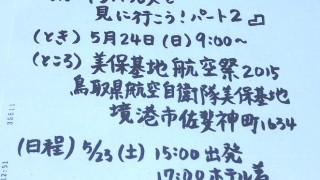 見に行こう!パート2』
(とき) 5月24日(日) 9:00〜
(ところ) 美保基地航空祭2015
鳥取県航空自衛隊美保基地
境港市佐斐神町1634
(日程) 5/23(土) 15:00出発
17:00ホテル着